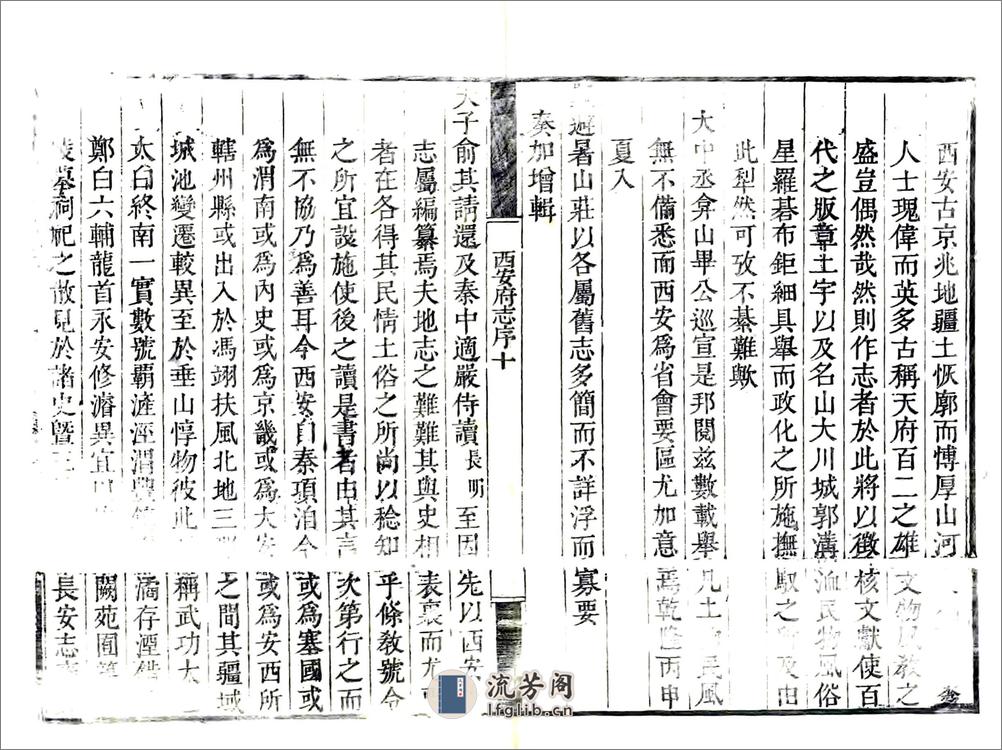 西安古京兆地疆土恢廓而愽厚山河
人士瑰偉而英多古稱天府百二之雄文物之
盛豈偶然哉然則作志者於此將以徵核文獻使百
代之版章土宇以及名山大川城郭溝洫民物風俗
星羅碁布鉅細具舉而政化之所施撫馭之所及由
此犁然可攷不綦難歟
大中丞弇山畢公巡宣是邦閱兹數載舉凡土民風
無不備悉而西安為省會要區尤加意焉乾隆丙申
夏入
避暑山莊以各屬舊志多簡而不詳浮而寡要
奏加增輯
西安府志序 十
天子俞其請還及秦中適嚴侍讀長明至因先以西安
志屬編纂焉夫地志之難難其與史相表裏而尤
者在各得其民情土俗之所尚以稔知乎條教號令
之所宜設施使後之讀是書者由其言次第行之而
無不協乃為善耳今西安自秦項洎今或為塞國或
為渭南或為內史或為京畿或為大安或為安西所
轄州縣或出入於馮翊扶風北地三之間其疆域
城池變遷較異至於垂山惇物彼此稱武功太
太白終南一實數號霸滻涇渭灃潏存湮
鄭白六輔龍首永安修濬異宜闕苑囿
墓祠祀之散見於諸史暨三長安志
流芳阁
lfglib.cn